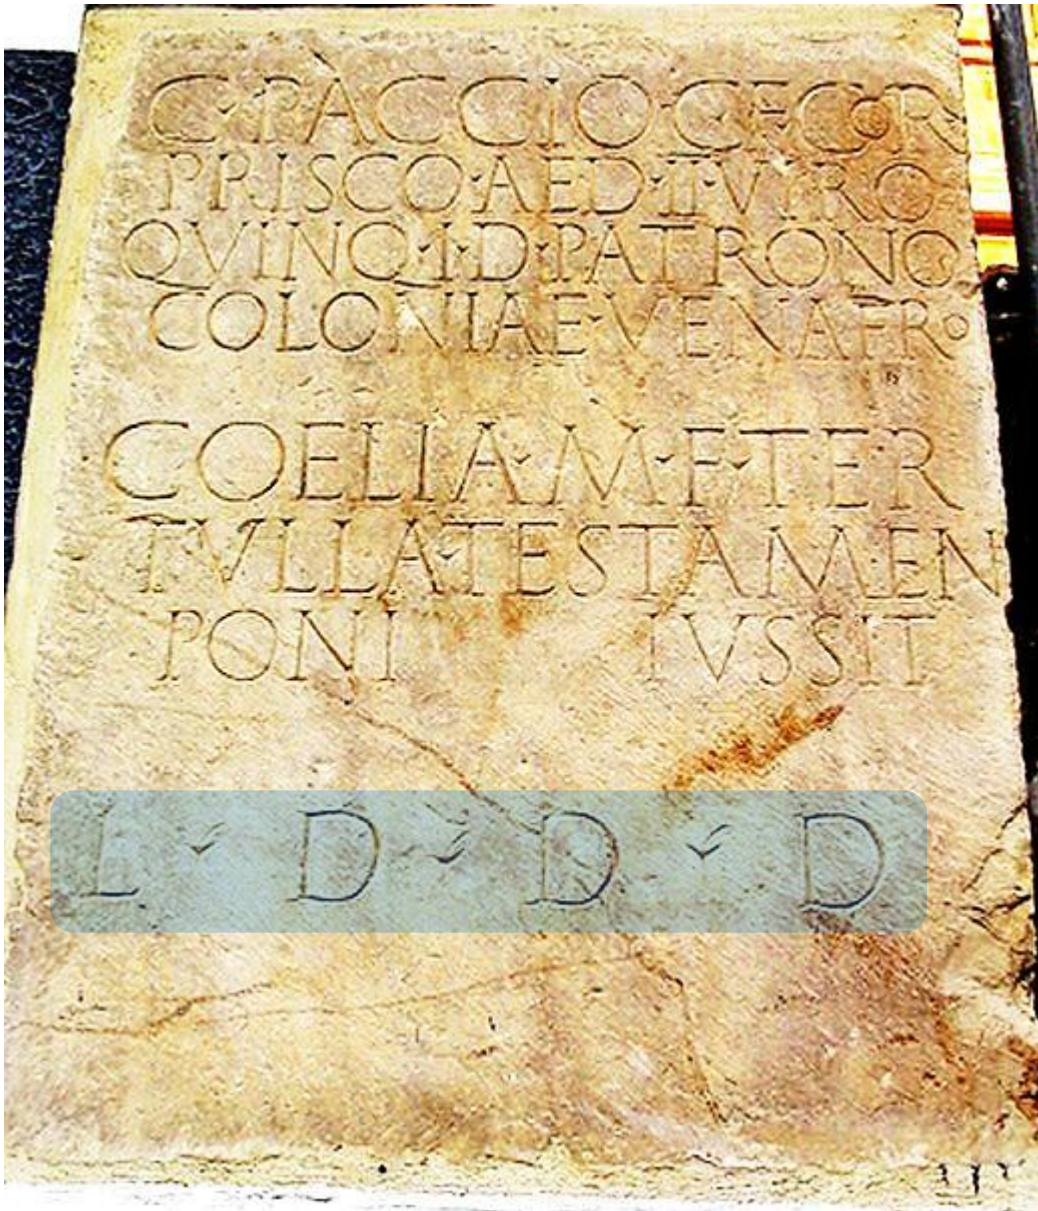 C·PACCIO·C·F·COR
PRISCO·AED·II·VIRO
QVINQ·I·D·PATRONO
COLONIAE·VENAFRO
COELIA·M·F·TER
TVLLA·TESTAMEN
PONI IVSSIT
L·D·D·D